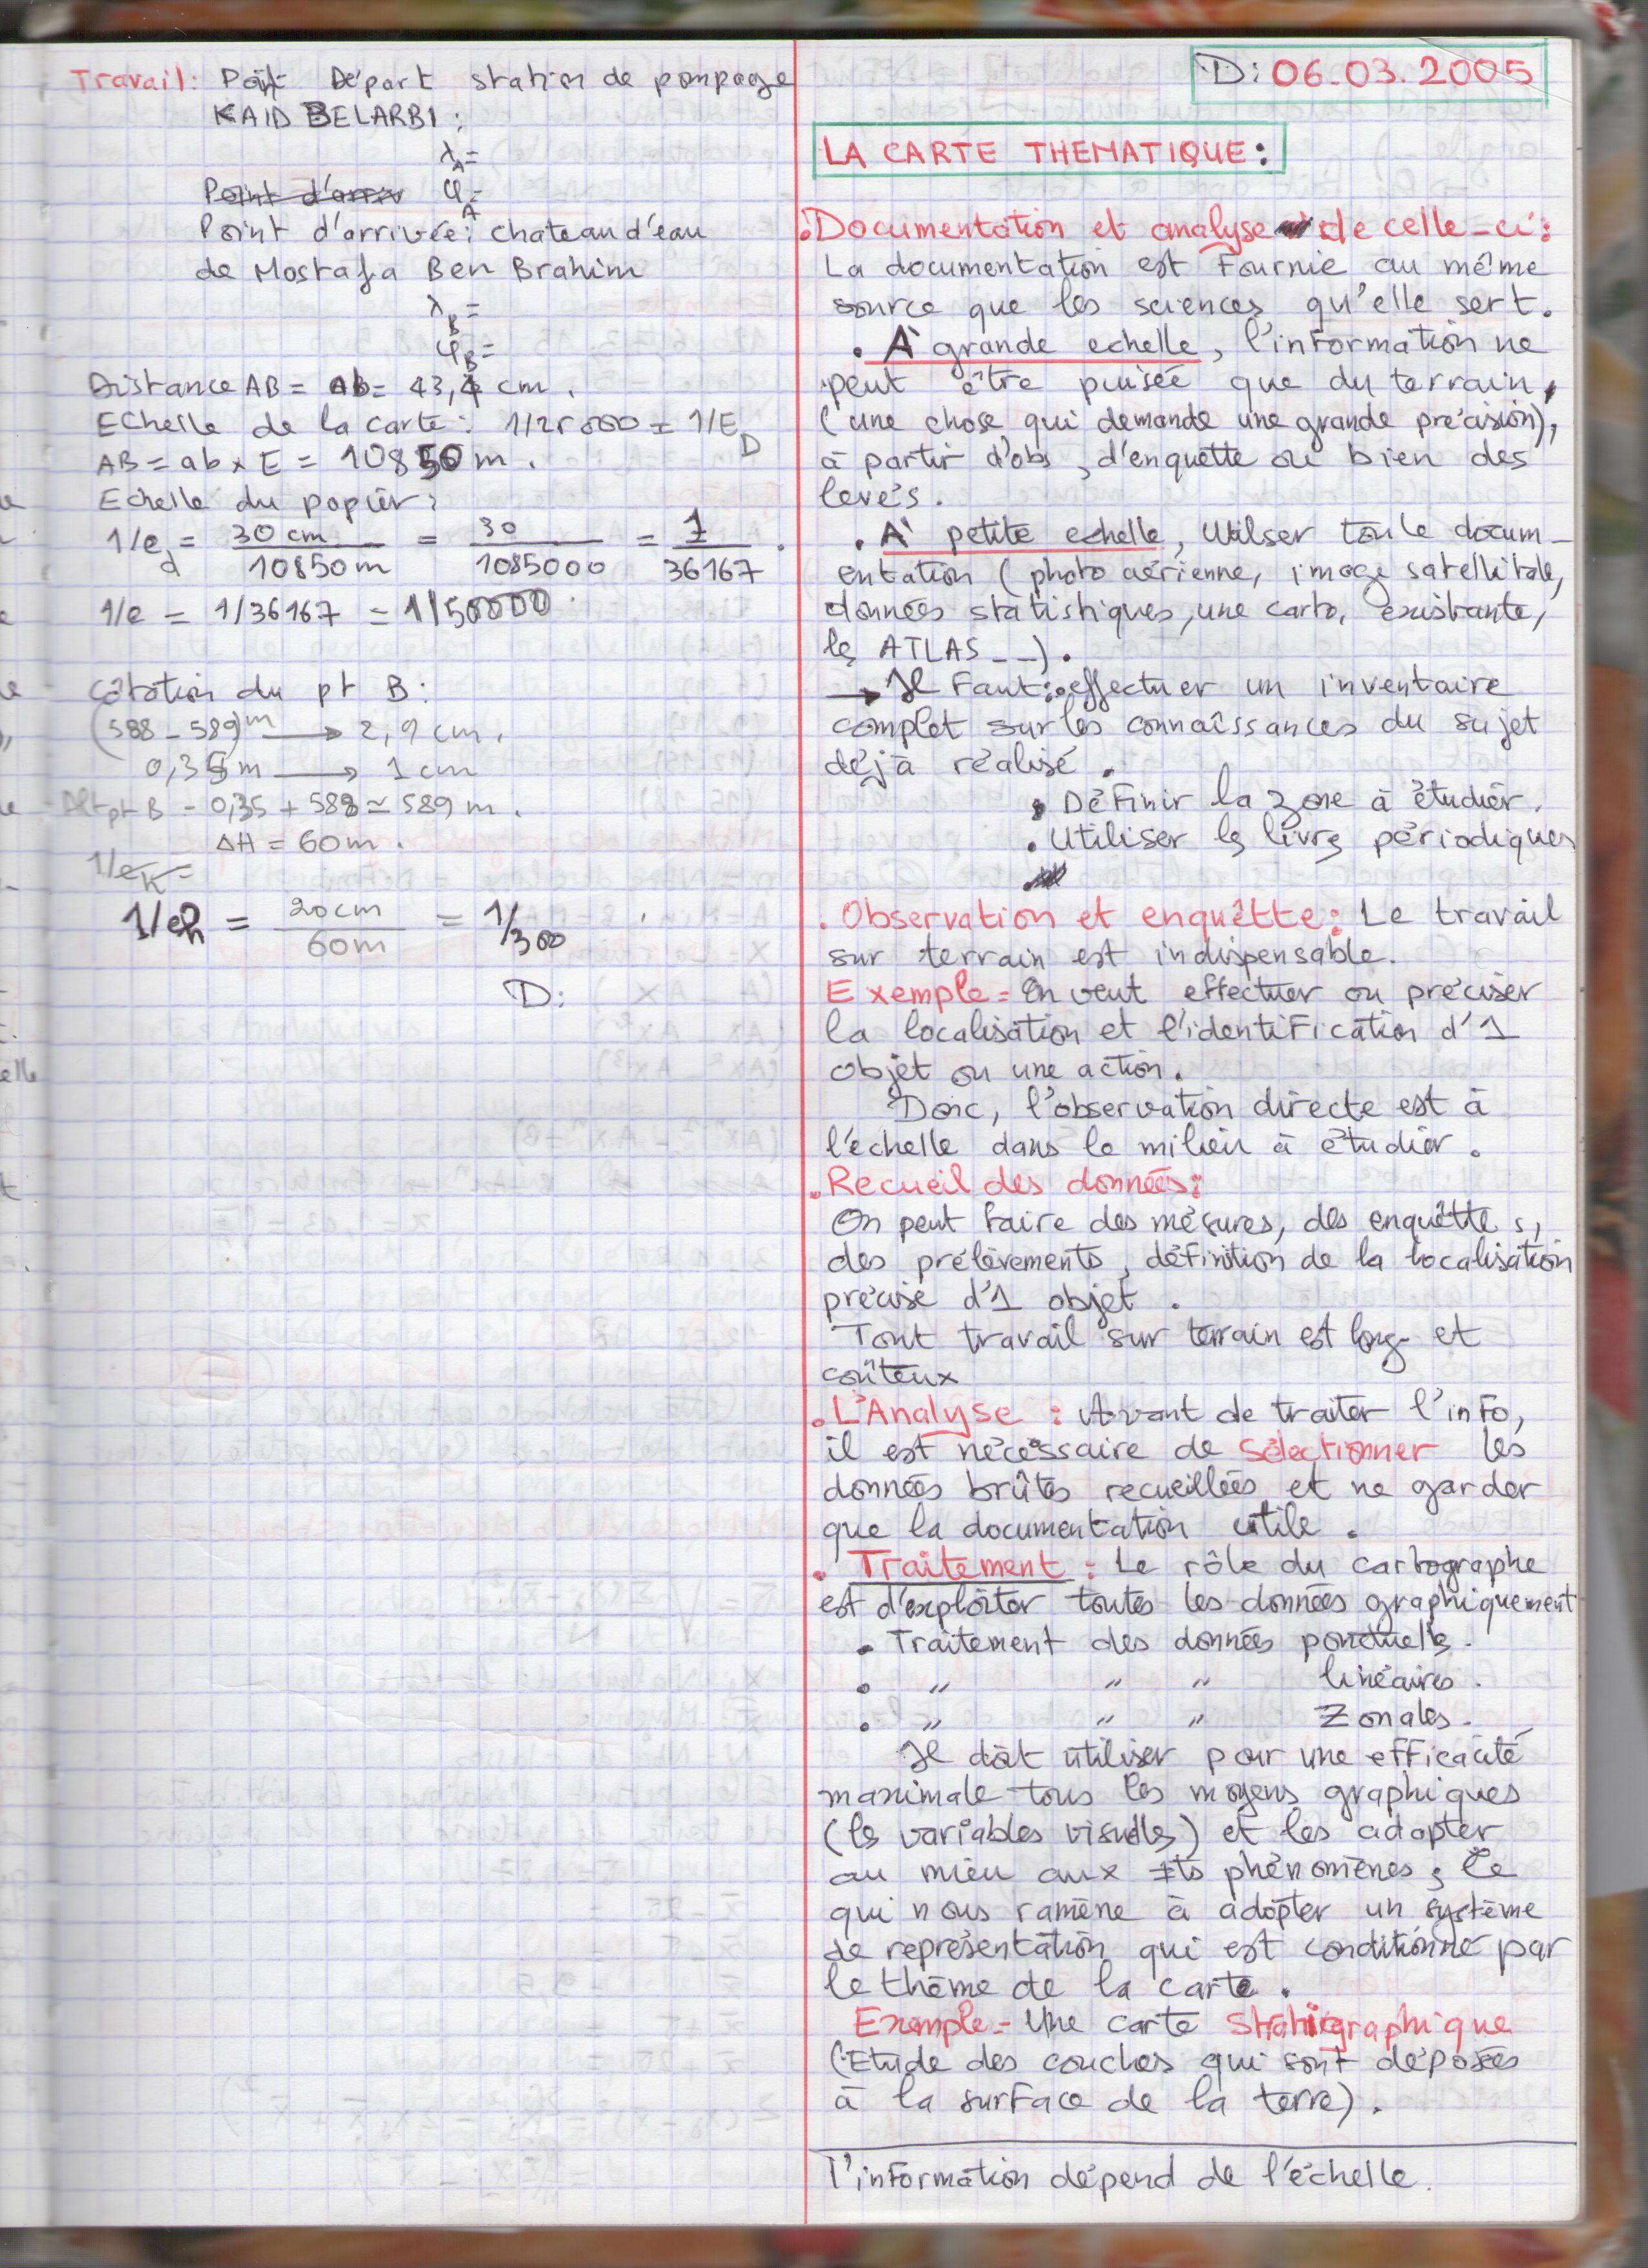 Travail: Poit Départ station de pompage
KAID BELARBI :
λA=
Point d'arriv φA=
Point d'arrivée: chateau d'eau
de Mostafa Ben Brahim
λB=
φB=
Distance AB = ab = 43,4 cm.
Echelle de la carte: 1/25000 = 1/ED
AB = ab x E = 10850 m.
Echelle du papier:
1/ed = 30 cm / 10850 m = 30 / 1085000 = 1 / 36167.
1/e = 1/36167 = 1/50000.
Côtation du pt B:
(588 - 589)m → 2,9 cm.
0,35m → 1 cm
Altpt B = 0,35 + 588 ≃ 589 m.
ΔH = 60m.
1/eK=
1/eh = 20cm / 60m = 1/300
D:
D: 06.03.2005
LA CARTE THEMATIQUE:
Documentation et analyse de celle-ci:
La documentation est Fournie au même
source que les sciences qu'elle sert.
. A' grande echelle, l'information ne
peut être puisée que du terrain,
(une chose qui demande une grande précision),
à partir d'obs, d'enquette ou bien des
levés.
. A' petite echelle, Utilser toule docum-
entation (photo aérienne, image satellitale,
données statistiques, une carto, existante,
les ATLAS - -).
→ Il Faut: effectuer un inventaire
complet sur les connaîssances du sujet
déjà réalisé.
. Définir la zone à étudier.
. Utiliser les livres périodiques
. Observation et enquêtte: Le travail
sur terrain est indispensable.
Exemple = On veut effectuer ou préciser
la localisation et l'identification d'1
objet ou une action.
Donc, l'observation directe est à
l'échelle dans le milieu à étudier.
. Recueil des données:
On peut faire des mésures, des enquêttes,
des prélèvements, définition de la localisation
précise d'1 objet.
Tout travail sur terrain est long et
coûteux
. L'Analyse : Avant de traiter l'info,
il est nécessaire de sélectionner les
données brûtes recueillées et ne garder
que la documentation utile.
. Traitement : Le rôle du cartographe
est d'exploiter toutes les données graphiquement
. Traitement des données ponctuelles.
. " " " linéaires.
. " " " Zonales.
Il doit utiliser pour une efficacité
maximale tous les moyens graphiques
(les variables visuelles) et les adapter
au mieu aux ≠ts phénomènes; Ce
qui nous ramène à adopter un système
de représentation qui est conditionné par
le thème de la carte.
Exemple = Une carte Stratigraphique
(Etude des couches qui sont déposées
à la surface de la terre).
l'information dépend de l'échelle.